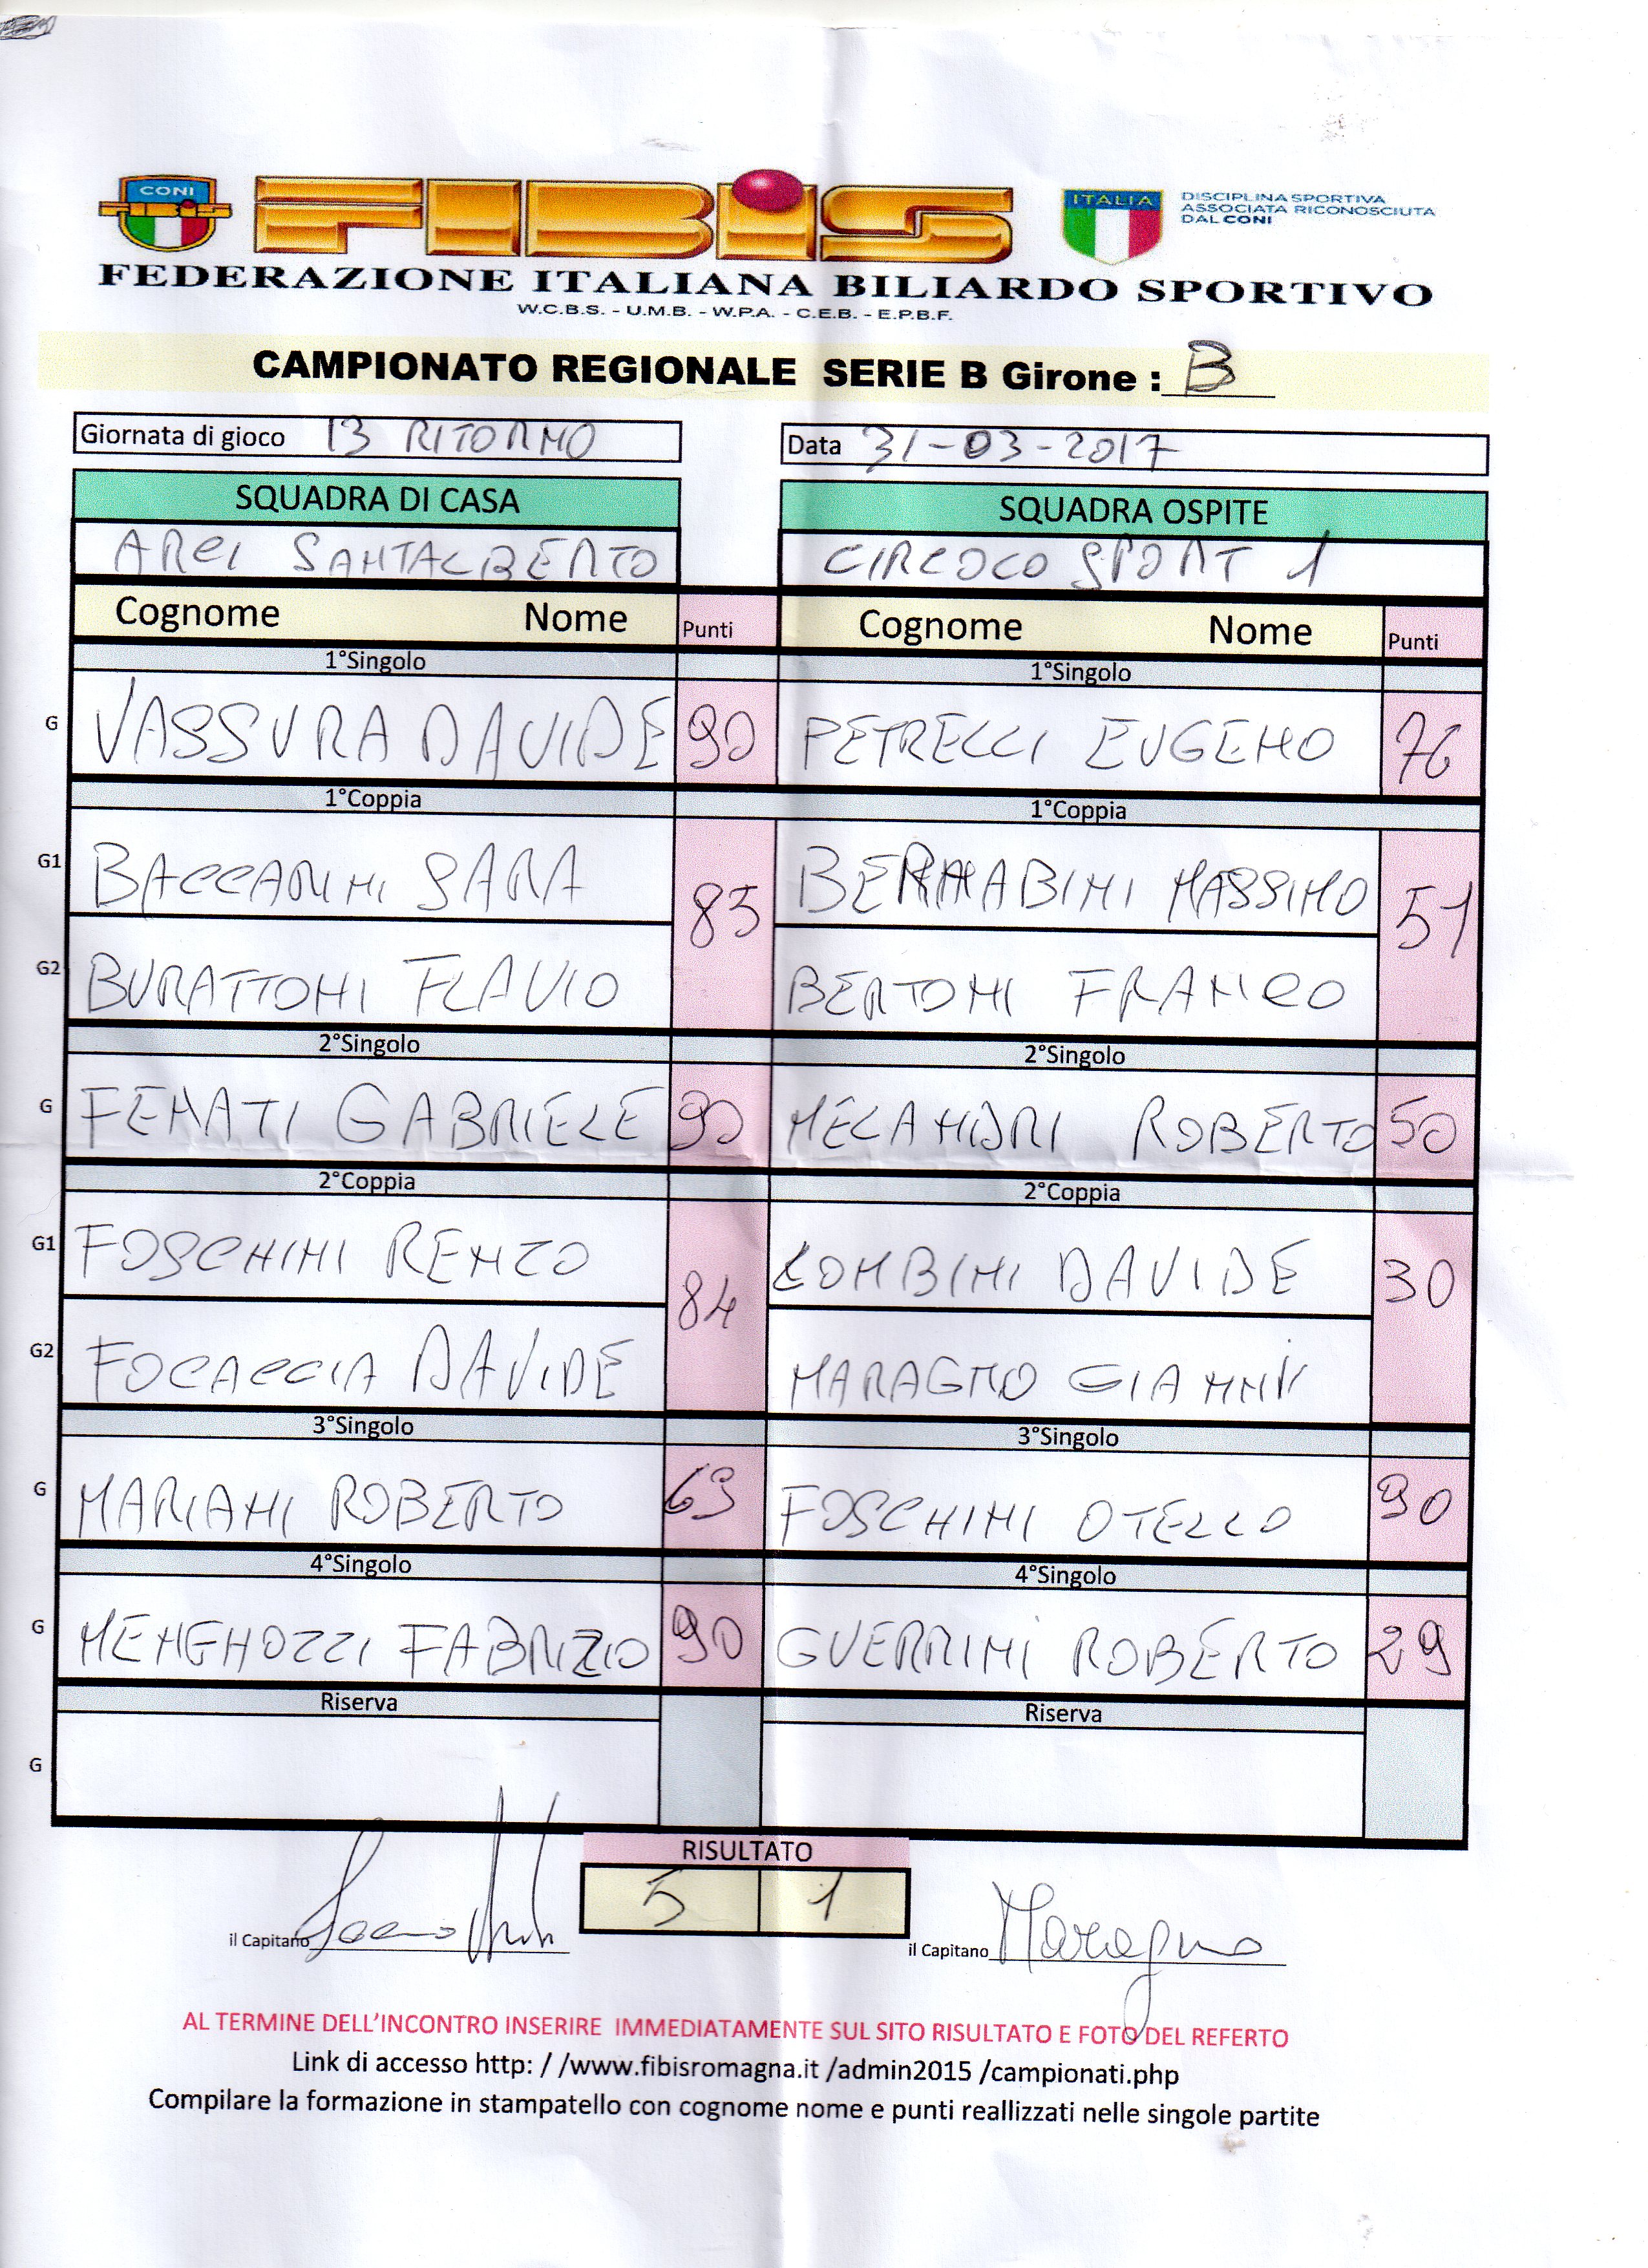 CONI
FIBIS
ITALIA
DISCIPLINA SPORTIVA
ASSOCIATA RICONOSCIUTA
DAL CONI
FEDERAZIONE ITALIANA BILIARDO SPORTIVO
W.C.B.S. - U.M.B. - W.P.A. - C.E.B. - E.P.B.F.
CAMPIONATO REGIONALE SERIE B Girone : B
Giornata di gioco 13 RITORNO Data 31-03-2017
SQUADRA DI CASA SQUADRA OSPITE
ARCI SANTALBERTO CIRCOLO SPORT 1
Cognome Nome Punti Cognome Nome Punti
1°Singolo 1°Singolo
G VASSURA DAVIDE 90 PETRELLI EUGENO 76
1°Coppia 1°Coppia
G1 BACCARINI SARA 85 BERNABINI MASSIMO 51
G2 BURATTONI FLAVIO BERTONI FRANCO
2°Singolo 2°Singolo
G FENATI GABRIELE 90 MELANDRI ROBERTO 50
2°Coppia 2°Coppia
G1 FOSCHINI RENZO 84 LOMBINI DAVIDE 30
G2 FOCACCIA DAVIDE MARAGNO GIANNI
3°Singolo 3°Singolo
G MARIANI ROBERTO 63 FOSCHINI OTELLO 90
4°Singolo 4°Singolo
G MENGHOZZI FABRIZIO 90 GUERRINI ROBERTO 29
Riserva Riserva
G
RISULTATO
5 1
il Capitano il Capitano Maragno
AL TERMINE DELL'INCONTRO INSERIRE IMMEDIATAMENTE SUL SITO RISULTATO E FOTO DEL REFERTO
Link di accesso http: / /www.fibisromagna.it /admin2015 /campionati.php
Compilare la formazione in stampatello con cognome nome e punti reallizzati nelle singole partite